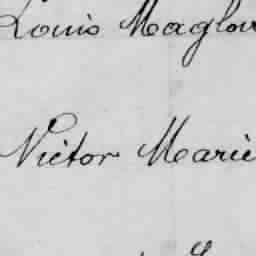 Louis Maglo
Victor Marie